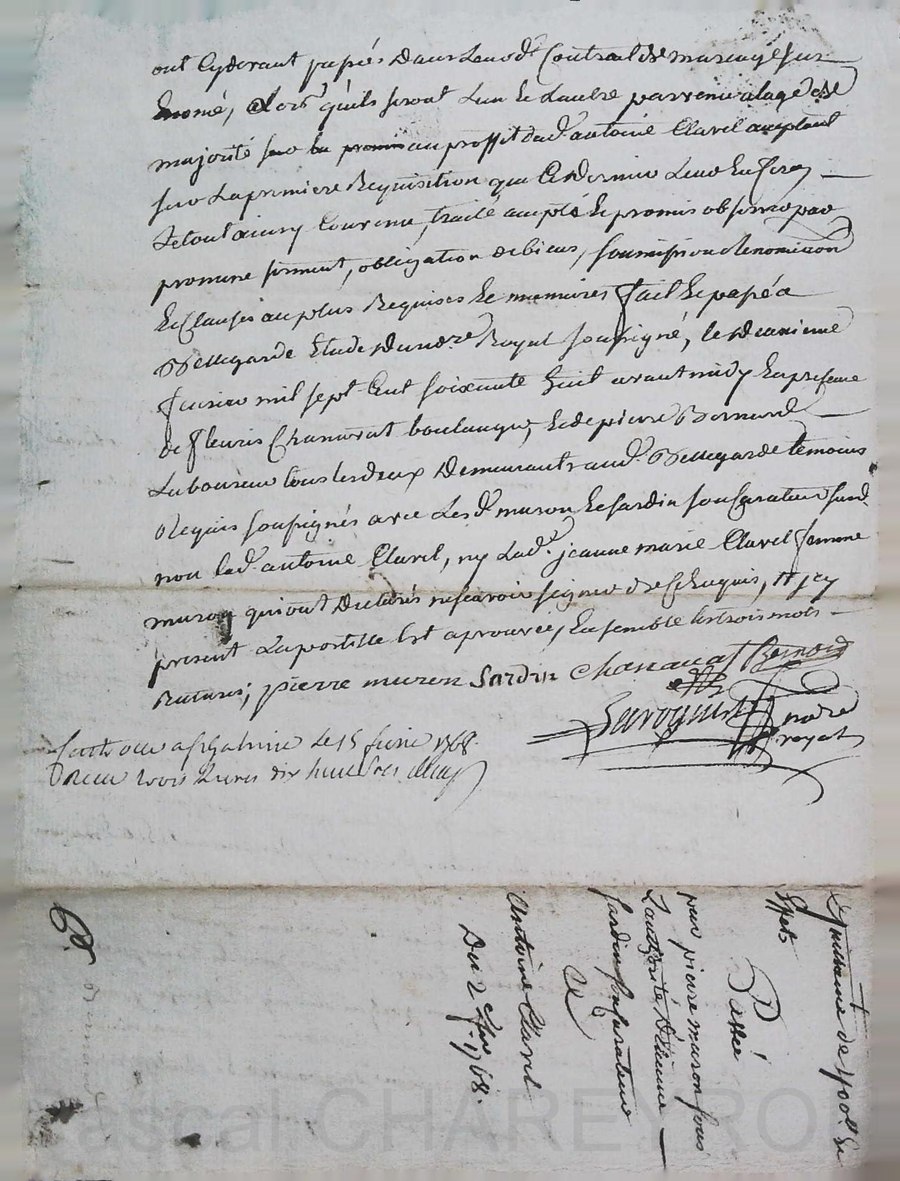 ont cydevant passés dans leurd. Contract de mariage sur
Enoncé, alors qu'ils seront L'un et L'autre parvenus a lage de
majorité au proffit dud. antoine Clavel acceptant
sur La premiere Requisition que Ce dernier Leur En fera
Le tout ainsy Convenu, traité accepté Et promis observer par
promesse serment, obligation de biens, soumission Renonciation
Et Clauses au plus Requises Et necessaires fait Et passé a
Bellegarde Etude du no.re Royal soussigné, le deuxieme
Janvier mil sept Cent soixante huit avant midy En presence
de fleuris Chanavat boulanger, Et de pierre Bernard
Laboureur tous les deux Demeurant aud. Bellegarde temoins
Requis soussignés avec Les d. muron Et Jardin son Curateur
non Led. antoine Clavel, ny Lad. jeanne marie Clavel femme
muron qui ont Declarés ne scavoir signer de Ce Enquis, Et
present La postille Est aprouvée, Ensemble les trois mots
Raturés; pierre muron Jardin Chanavat Bernard
no.re
royal
Controllé a le 15 Janvier 1768.
Receu trois Livres dix huit sols
Quittance de 400ll Et
Effets
Passée
par pierre muron sous
L'authorité d'Etienne
Jardin son Curateur
A
Antoine Clavel
Du 2 1768.
pascal CHAREYRO